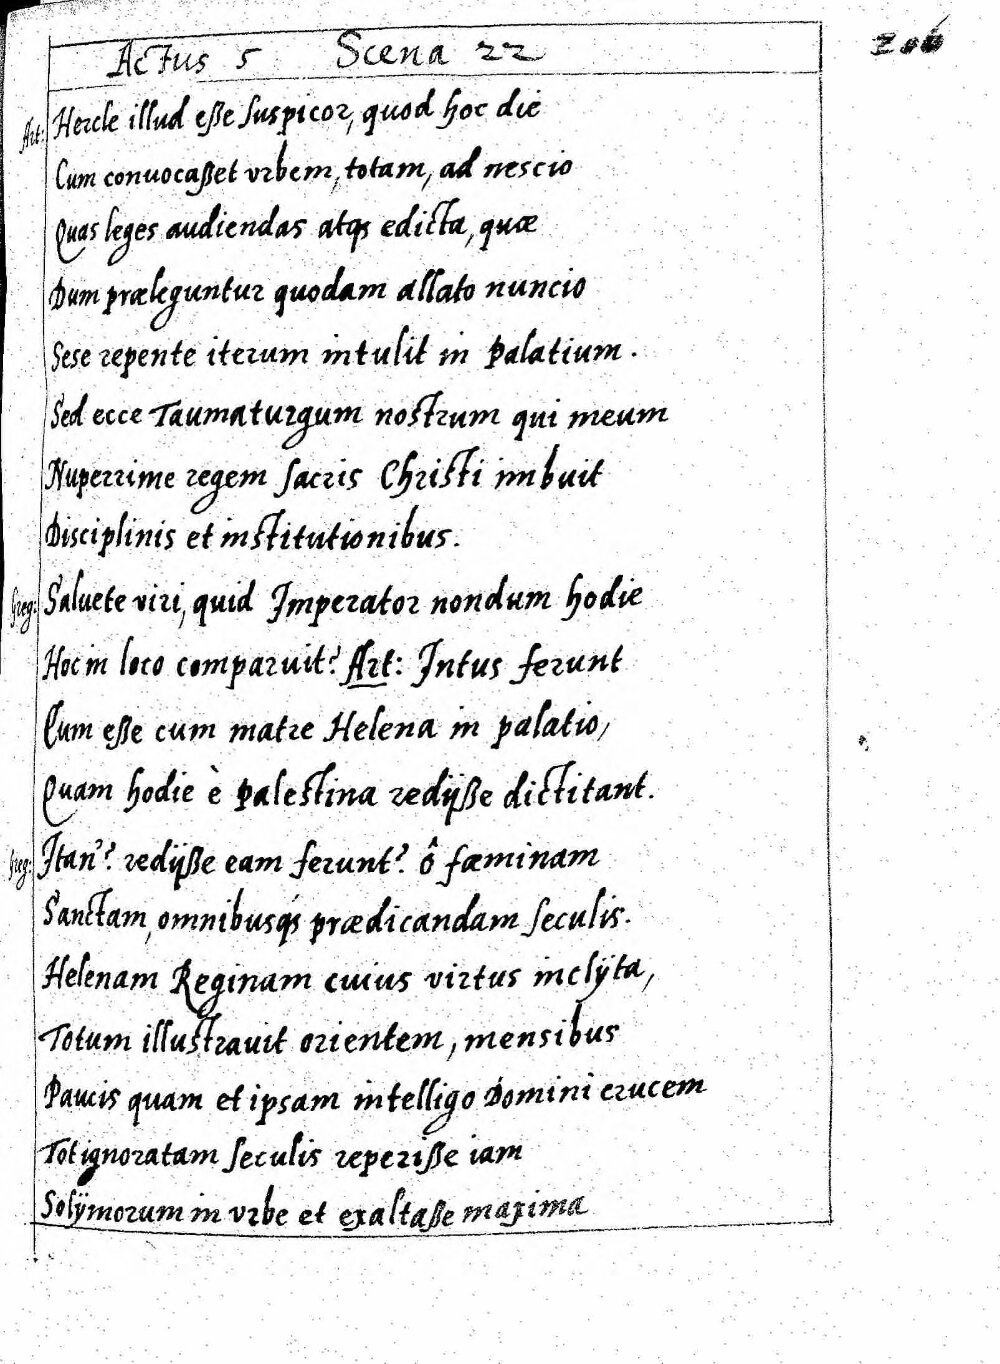 Actus 5 Scena 22
206
Art: Hercle illud eße suspicor, quod hoc die
Cum conuocaßet vrbem, totam, ad nescio
Quas leges audiendas atqs edicta, quæ
Dum præleguntur quodam allato nuncio
Sese repente iterum intulit in Palatium.
Sed ecce Taumaturgum nostrum qui meum
Nuperrime regem sacris Christi imbuit
Disciplinis et institutionibus.
Greg: Saluete viri, quid Imperator nondum hodie
Hoc in loco comparuit? Art: Intus ferunt
Eum eße cum matre Helena in palatio,
Quam hodie è Palestina redijße dictitant.
Greg: Itan'? redijße eam ferunt? ô fæminam
Sanctam, omnibusqs prædicandam seculis.
Helenam Reginam cuius virtus inclÿta,
Totum illustrauit orientem, mensibus
Paucis quam et ipsam intelligo Domini crucem
Tot ignoratam seculis reperiße iam
Solÿmorum in vrbe et exaltaße maxima